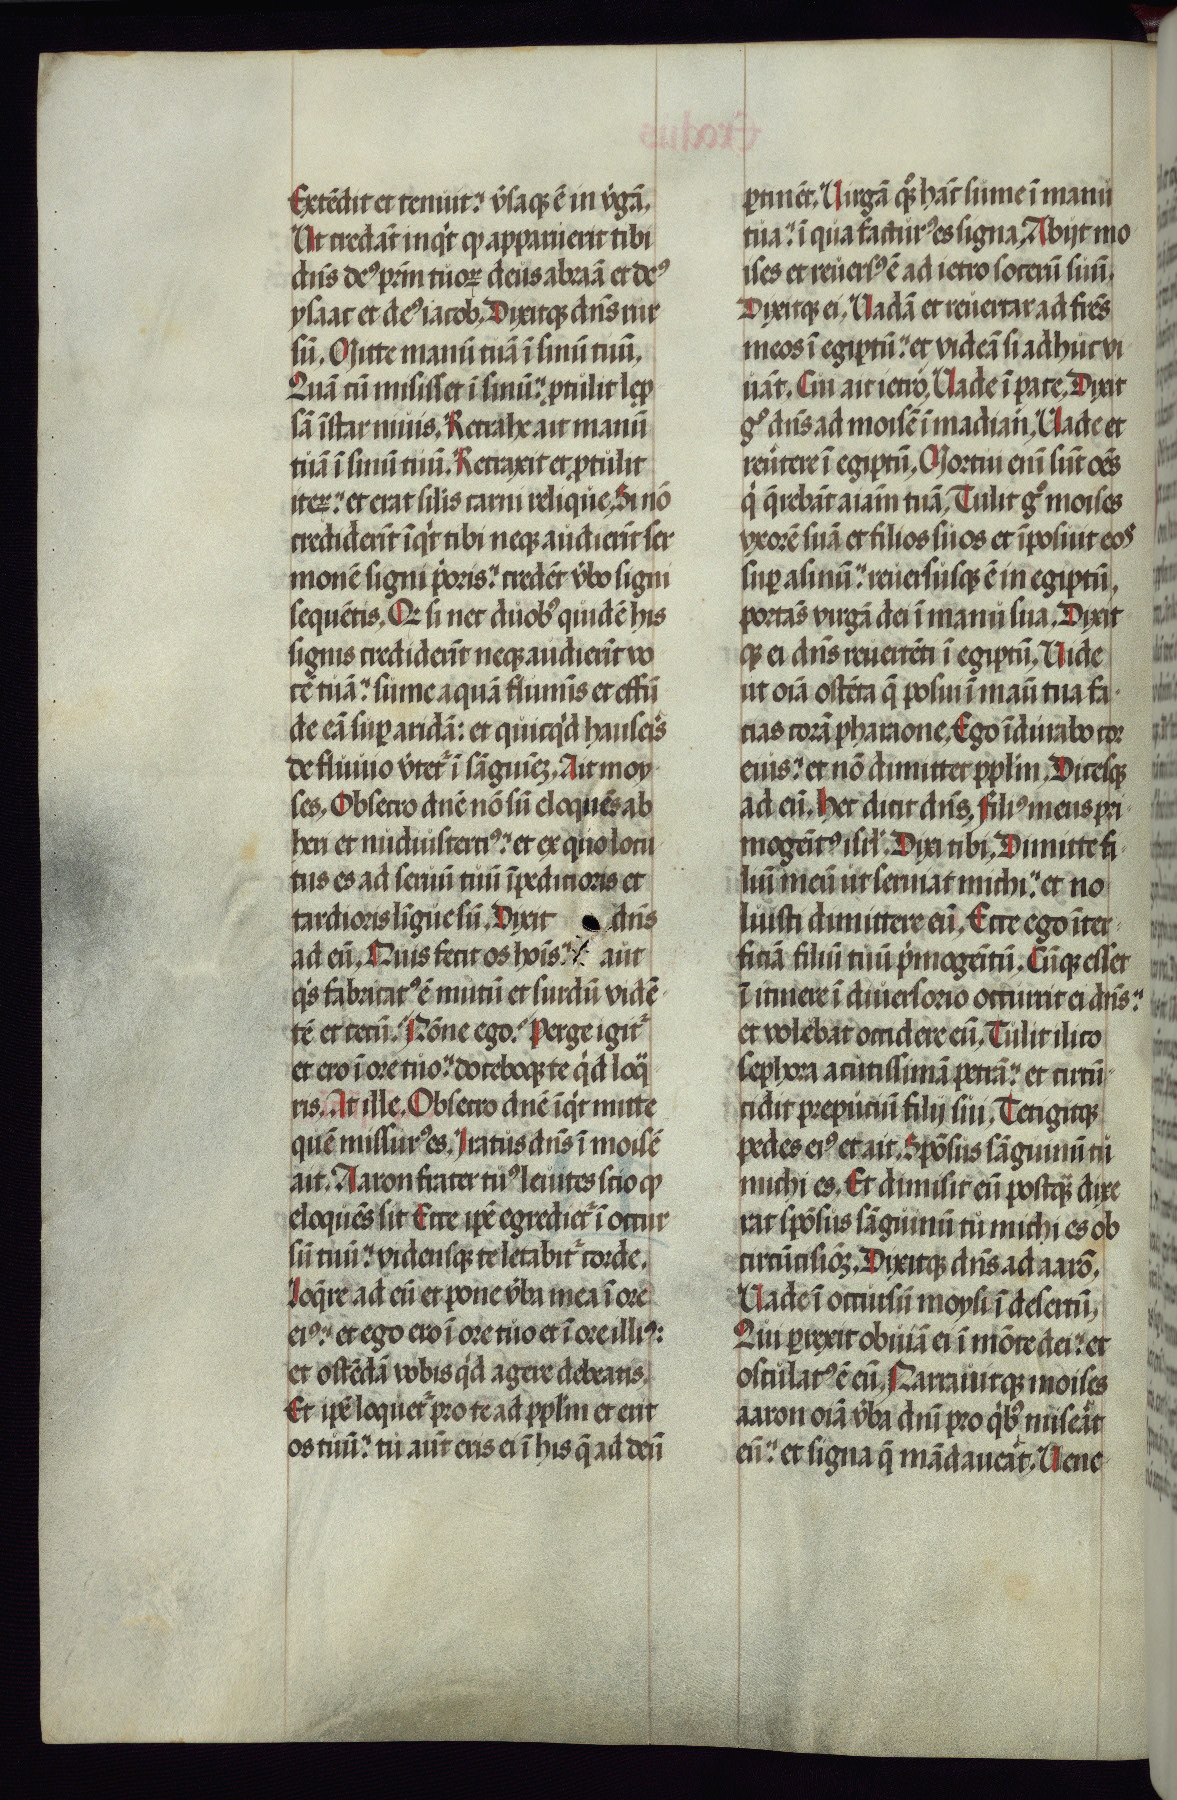 Extēdit et tenuit: v̾saq; ē in v̾gā.
Ut credāt inq̇t ꝙ apparuerit tibi
dn̄s deꝰ pr̄m tuoꝝ deus abraā et deꝰ
ysaac et deꝰ iacob. Dixitq; dn̄s rur
sū. Mitte manū tuā ī sinū tuū.
Quā cū misisset ī sinū: ꝓtulit lep
sā īstar niuis. Retrahe ait manū
tuā ī sinū tuū. Retraxit et ꝓtulit
iteꝝ: et erat sil̄is carni relique. Si nō
crediderīt īq̇t tibi neq; audierīt ser
monē signi p̓oris: credēt v̾bo signi
sequētis. Qꝫ si nec duobꝰ quidē his
signis crediderīt neq; audierīt vo
cē tuā: sume aquā flumīs et effū
de eā suꝑ aridā: et quicq̇d hauseis
de fluuio v̾tet̃ ī sāguiēꝫ. Ait moy
ses. Obsecro dn̄e nō sū eloquēs ab
heri et nudiusterciꝰ: et ex quo locu
tus es ad seruū tuū īpedicioris et
tardioris līgue sū. Dixit dn̄s
ad eū. Quis fecit os hoīs: aut
q̇s fabricatꝰ ē mutū et surdū vidē
tē et cecū? Nōne ego? Perge igit̃
et ero ī ore tuo: doceboq; te q̇d loq̄
ris. At ille. Obsecro dn̄e īq̇t mitte
quē missurꝰ es. Iratus dn̄s ī moisē
ait. Aaron frater tuꝰ leuites scio ꝙ
eloquēs sit Ecce ip̄e egrediet̃ ī occur
sū tuū: vidensq; te letabit̃ corde.
Loq̄re ad eū et pone v̾ba mea ī ore
eiꝰ: et ego ero ī ore tuo et ī ore illiꝰ:
et ostēdā vobis q̇d agere debeatis.
Et ip̄e loquet̃ pro te ad ppl̄m et erit
os tuū: tu aut̄ eris ei ī his q̄ ad deū
ꝑtinēt. Virgā q̊ꝫ hāc sume ī manu
tua: ī qua facturꝰ es signa. Abijt mo
ises et reuersꝰ ē ad ietro socerū suū.
Dixitq; ei. Vadā et reuertar ad frēs
meos ī egiptū: et videā si adhuc vi
uāt. Cui ait ietro. Vade ī pace. Dixit
gͦ dn̄s ad moisē ī madian. Vade et
reu̾tere ī egiptū. Mortui enī sūt oēs
q̇ q̄rebāt aiām tuā. Tulit gͦ moises
vxorē suā et filios suos et īposuit eos
suꝑ asinū: reuersusq; ē in egiptū.
portās virgā dei ī manu sua. Dixit
q; ei dn̄s reuertēti ī egiptū. Vide
ut oīa ostēta q̄ posui ī manu tua fa
cias corā pharaone. Ego īdurabo cor
eius: et nō dimittet ppl̄m. Dicesq;
ad eū. Hec dicit dn̄s. Filiꝰ meus pri
mogeītꝰ isrl̄. Dixi tibi. Dimitte fi
liū meū ut seruiat michi: et no
luisti dimittere eū. Ecce ego īter
ficiā filiū tuū p̓mogeītū. Cūq; esset
ī itinere ī diuersorio occurrit ei dn̄s:
et volebat occidere eū. Tulit ilico
sephora acutissimā petrā: et circū
cidit prepuciū filij sui. Tetigitq;
pedes eiꝰ et ait. Spōsus sāguinū tu
michi es. Et dimisit eū postq̄ꝫ dixe
rat spōsus sāguinū tu michi es ob
circūcisiōꝫ. Dixitq; dn̄s ad aarō.
Vade ī occursū moysi ī desertū.
Qui ꝑrexit obuiā ei ī mōte dei: et
osculatꝰ ē eū. Narrauitq; moises
aaron oīa v̾ba dnī pro q̇bꝰ miseāt
eū: et signa q̄ mādaueāt. Vene